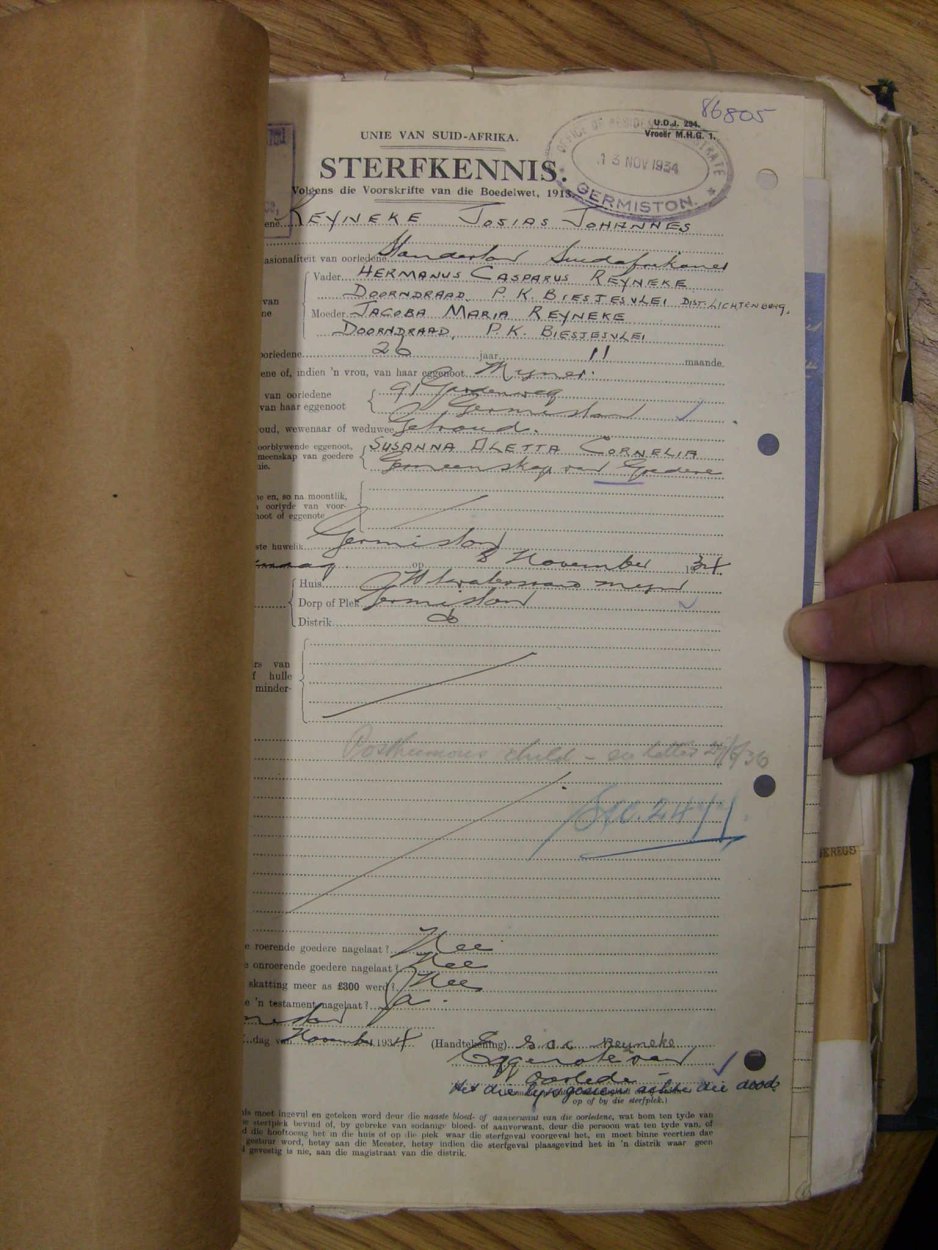 86805
U.D.J. 294.
Vroeër M.H.G. 1.
OFFICE OF RESIDENT MAGISTRATE
13 NOV 1934
GERMISTON.
UNIE VAN SUID-AFRIKA.
STERFKENNIS.
Volgens die Voorskrifte van die Boedelwet, 1913.
REYNEKE JOSIAS JOHANNES
asionaliteit van oorledene Standerton Suidafrikaner
Vader HERMANUS CASPARUS REYNEKE
DOORNDRAAD, P.K. BIESJESVLEI DIST. LICHTENBURG.
van
ne Moeder JACOBA MARIA REYNEKE
DOORNDRAAD, P.K. BIESJESVLEI
oorledene 26 jaar 11 maande.
ene of, indien 'n vrou, van haar eggenoot Myner.
van oorledene 91
van haar eggenoot Germiston
oud, wewenaar of weduwee Getroud.
oorblywende eggenoot, SUSANNA ALETTA CORNELIA
meenskap van goedere Gemeenskap van Goedere
nie.
e en, so na moontlik,
oorlyde van voor-
noot of eggenote
ste huwelik Germiston
op 8 November 1934
Huis Witwatersrand myn
Dorp of Plek Germiston
Distrik do
rs van
f hulle
minder-
Posthumous child - see letter 21/6/36
e roerende goedere nagelaat? Nee
e onroerende goedere nagelaat? Nee
skatting meer as £300 werd? Nee
e 'n testament nagelaat? Ja.
dag van November 1934 (Handtekening) S A C Reyneke
Eggenote van
oorlede
op of by die sterfplek.)
is moet ingevul en geteken word deur die naaste bloed- of aanverwant van die oorledene, wat hom ten tyde van
e sterfplek bevind of, by gebreke van sodanige bloed- of aanverwant, deur die persoon wat ten tyde van, of
d die hooftoesig het in die huis of op die plek waar die sterfgeval voorgeval het, en moet binne veertien dae
gestuur word, hetsy aan die Meester, hetsy indien die sterfgeval plaasgevind het in 'n distrik waar geen
gevestig is nie, aan die magistraat van die distrik.